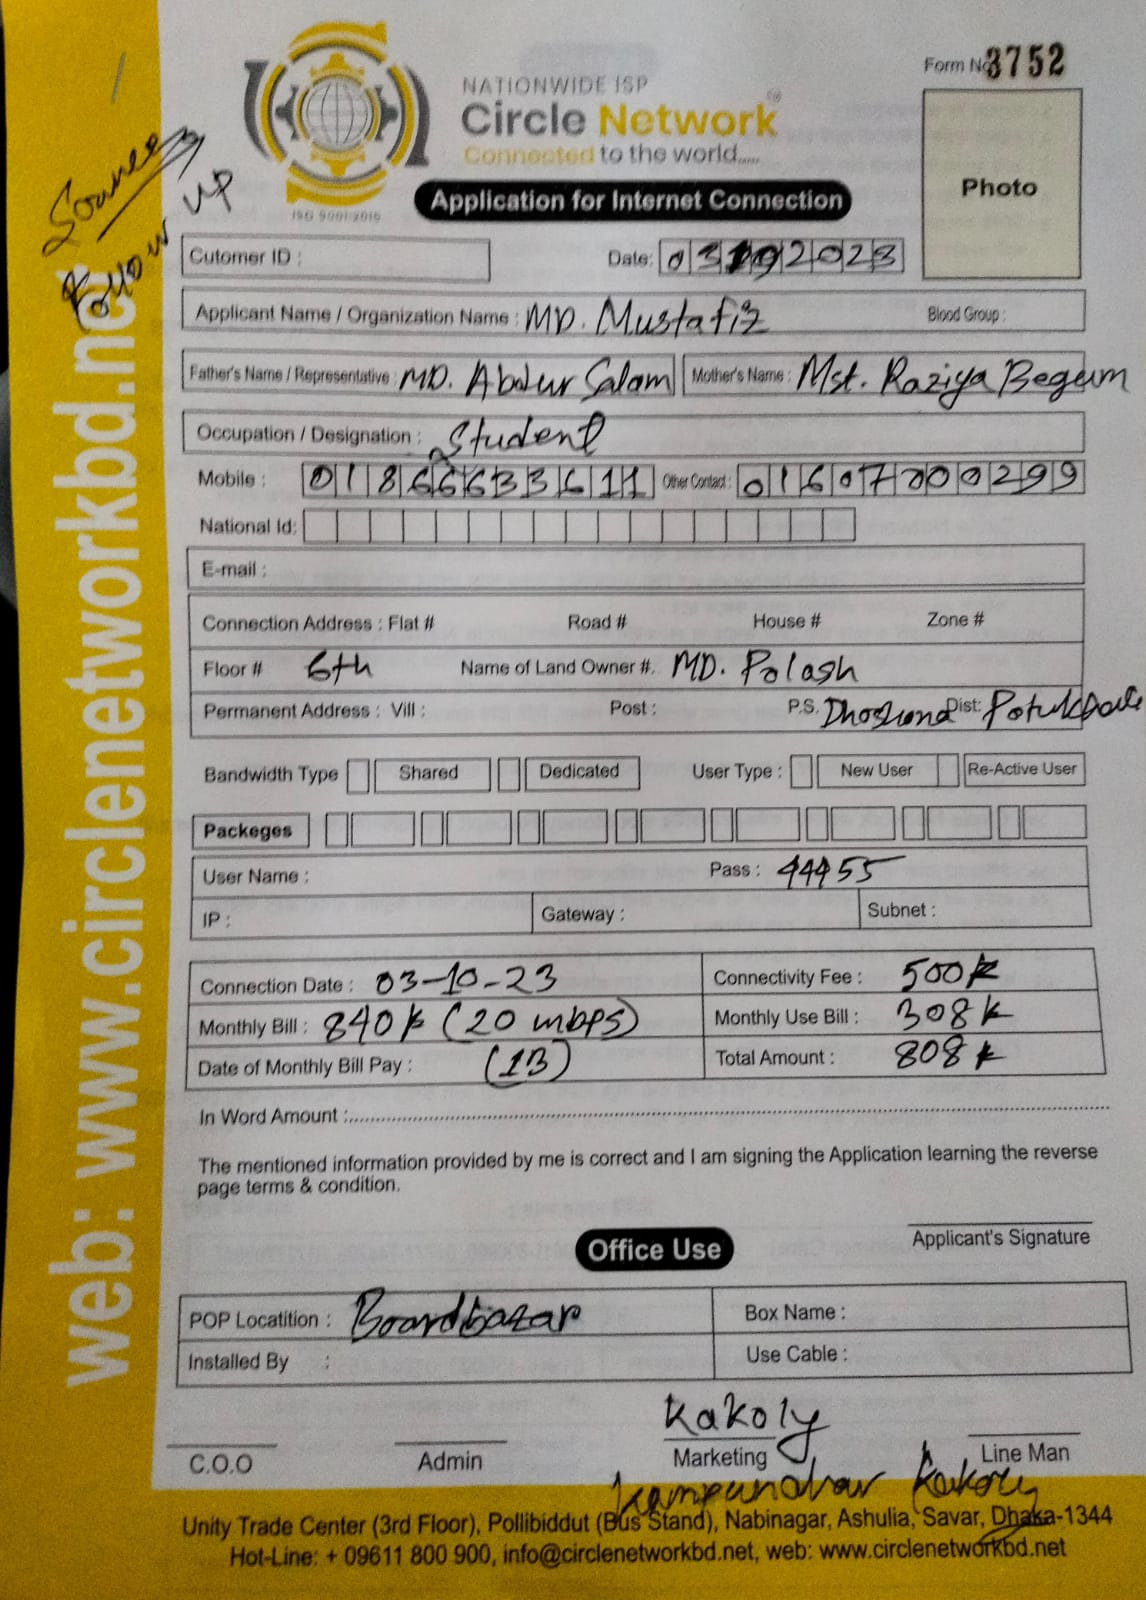 Form No 3752
NATIONWIDE ISP
Circle Network
Connected to the world.....
ISO 9001:2015
Photo
Application for Internet Connection
Follow up
Cutomer ID :
Date: 03102023
Applicant Name / Organization Name : MD. Mustafiz Blood Group :
Father's Name / Representative : MD. Abdur Salam Mother's Name : Mst. Raziya Begum
Occupation / Designation : Student
Mobile : 01866633611 Other Contact : 01607000299
National Id:
E-mail :
Connection Address : Flat # Road # House # Zone #
Floor # 6th Name of Land Owner #. MD. Polash
Permanent Address : Vill : Post : P.S. Dist:
Bandwidth Type Shared Dedicated User Type : New User Re-Active User
Packeges
User Name : Pass : 44455
IP : Gateway : Subnet :
Connection Date : 03-10-23 Connectivity Fee : 500
Monthly Bill : 840 (20 mbps) Monthly Use Bill : 308
Date of Monthly Bill Pay : (13) Total Amount : 808
In Word Amount :
The mentioned information provided by me is correct and I am signing the Application learning the reverse
page terms & condition.
Applicant's Signature
Office Use
POP Locatition : Boardbazar Box Name :
Installed By : Use Cable :
Kakoly
C.O.O Admin Marketing Line Man
Unity Trade Center (3rd Floor), Pollibiddut (Bus Stand), Nabinagar, Ashulia, Savar, Dhaka-1344
Hot-Line: + 09611 800 900, info@circlenetworkbd.net, web: www.circlenetworkbd.net
web: www.circlenetworkbd.net